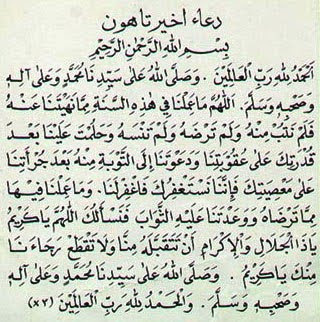 دعاء اخير تاهون
بِسْمِ اللهِ الرَّحْمٰنِ الرَّحِيْمِ
اَلْحَمْدُ لِلّٰهِ رَبِّ الْعَالَمِيْنَ . وَصَلَّى اللهُ عَلَى سَيِّدِنَا مُحَمَّدٍ وَعَلَى آلِهِ
وَصَحْبِهِ وَسَلَّمَ . اَللّٰهُمَّ مَا عَمِلْنَا فِي هٰذِهِ السَّنَةِ مِمَّا نَهَيْتَنَا عَنْهُ
فَلَمْ نَتُبْ مِنْهُ وَلَمْ تَرْضَهُ وَلَمْ تَنْسَهُ وَحَلُمْتَ عَلَيْنَا بَعْدَ
قُدْرَتِكَ عَلَى عُقُوْبَتِنَا وَدَعَوْتَنَا إِلَى التَّوْبَةِ مِنْهُ بَعْدَ جُرْأَتِنَا
عَلَى مَعْصِيَتِكَ فَإِنَّنَا نَسْتَغْفِرُكَ فَاغْفِرْلَنَا . وَمَا عَمِلْنَا فِيْهَا
مِمَّا تَرْضَاهُ وَوَعَدْتَنَا عَلَيْهِ الثَّوَابَ فَنَسْأَلُكَ اللّٰهُمَّ يَا كَرِيْمُ
يَا ذَا الْجَلَالِ وَالْإِكْرَامِ أَنْ تَتَقَبَّلَهُ مِنَّا وَلَا تَقْطَعْ رَجَاءَنَا
مِنْكَ يَا كَرِيْمُ . وَصَلَّى اللهُ عَلَى سَيِّدِنَا مُحَمَّدٍ وَعَلَى آلِهِ
وَصَحْبِهِ وَسَلَّمَ . وَالْحَمْدُ لِلّٰهِ رَبِّ الْعَالَمِيْنَ (٣×)